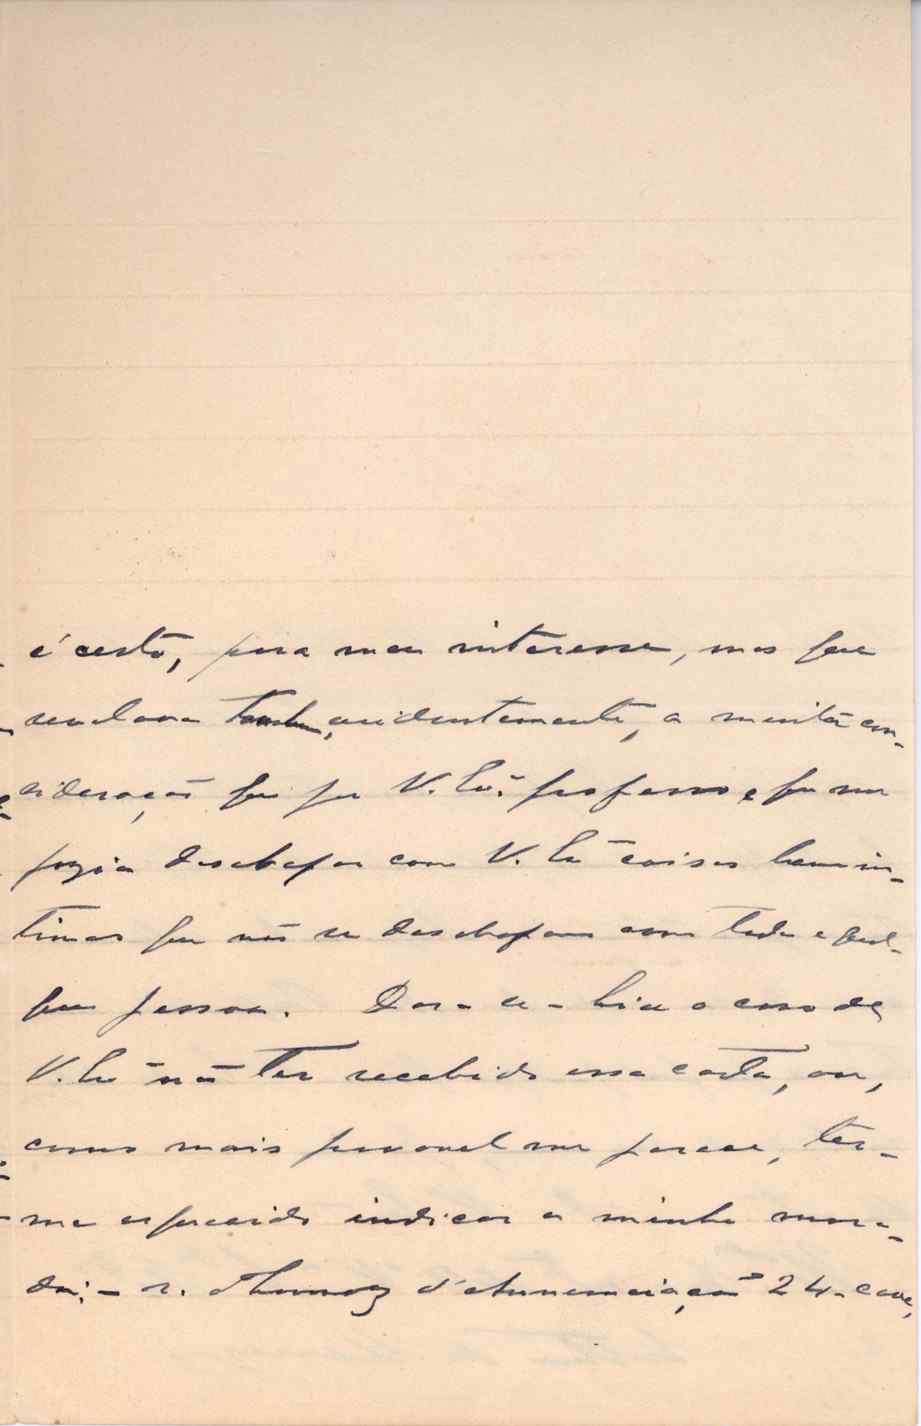 é certo, para meu interesse, mas que
revelava evidentemente, a muita con-
sideração que por V. Exª professo, e que me
fazia desabafar com V. Exª coisas bem in-
timas que não se desabafam com toda e qual-
quer pessoa. Dar-se-hia o caso de
V. Exª não ter recebido essa carta, ou,
como mais provavel me parece, ter-
me esquecido indicar a minha mora-
da: – r. Thomaz d'Annunciação 24-cave,